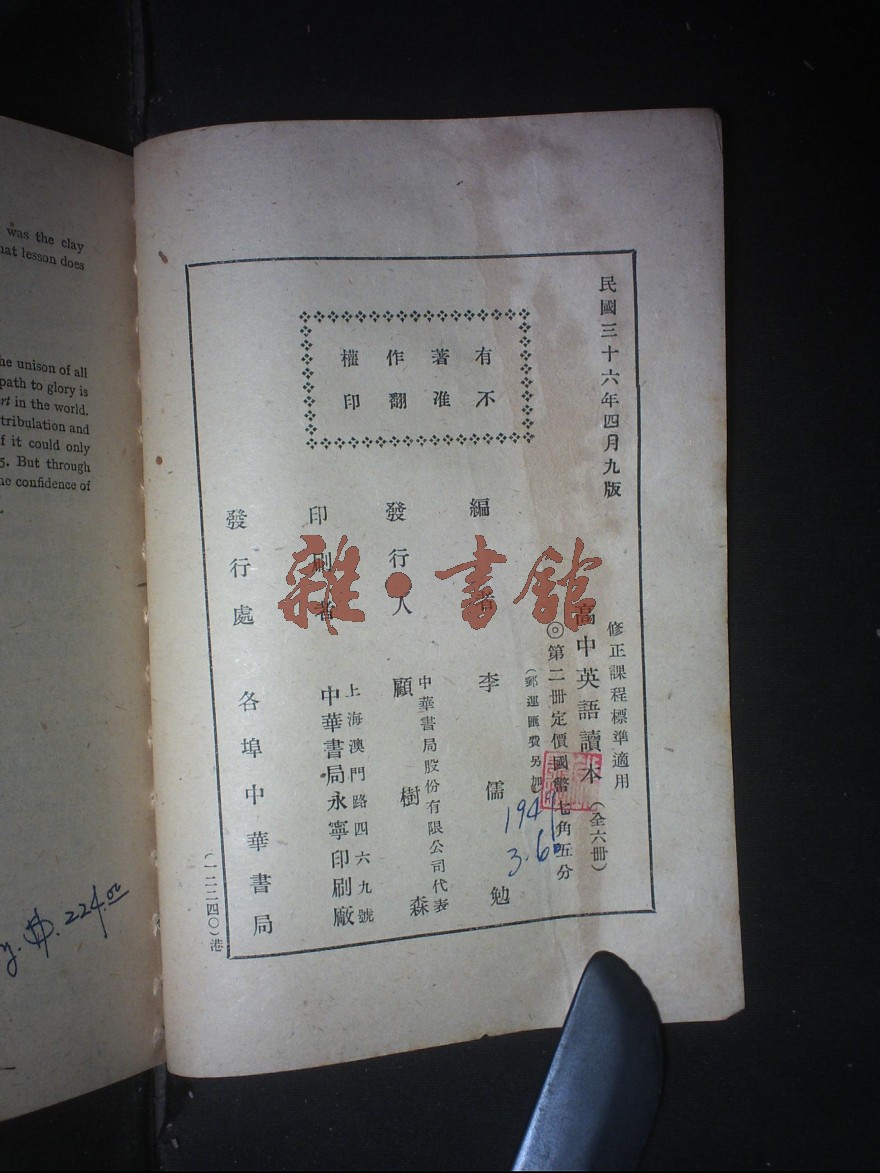 was the clay
hat lesson does
he unison of all
path to glory is
rt in the world.
tribulation and
f it could only
5. But through
he confidence of
y. $. 224.00
民國三十六年四月九版
修正課程標準適用
高中英語讀本（全六冊）
◎第二冊定價國幣七角五分
（郵運匯費另加）
1947
3.6
有著作權
不准翻印
編者 李儒勉
發行人 中華書局股份有限公司代表
顧樹森
印刷者 上海澳門路四六九號
中華書局永寧印刷廠
發行處 各埠中華書局
（一二二四〇）港
雜·書館